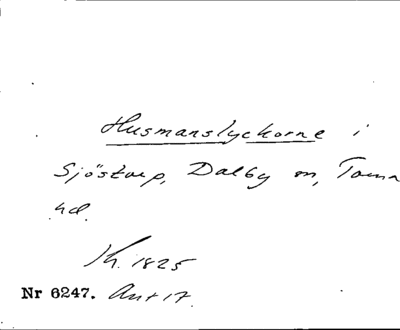 Husmanslyckorne i
Sjöstorp, Dalby sn, Torna
hd.
Kh. 1825
Nr 6247. Ant 17.